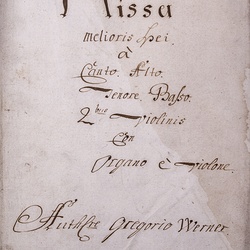 Missa
melioris spei
à
Canto. Alto.
Tenore. Basso.
2bus violinis
Con
Organo è violone.
Auth: Gregorio Werner.